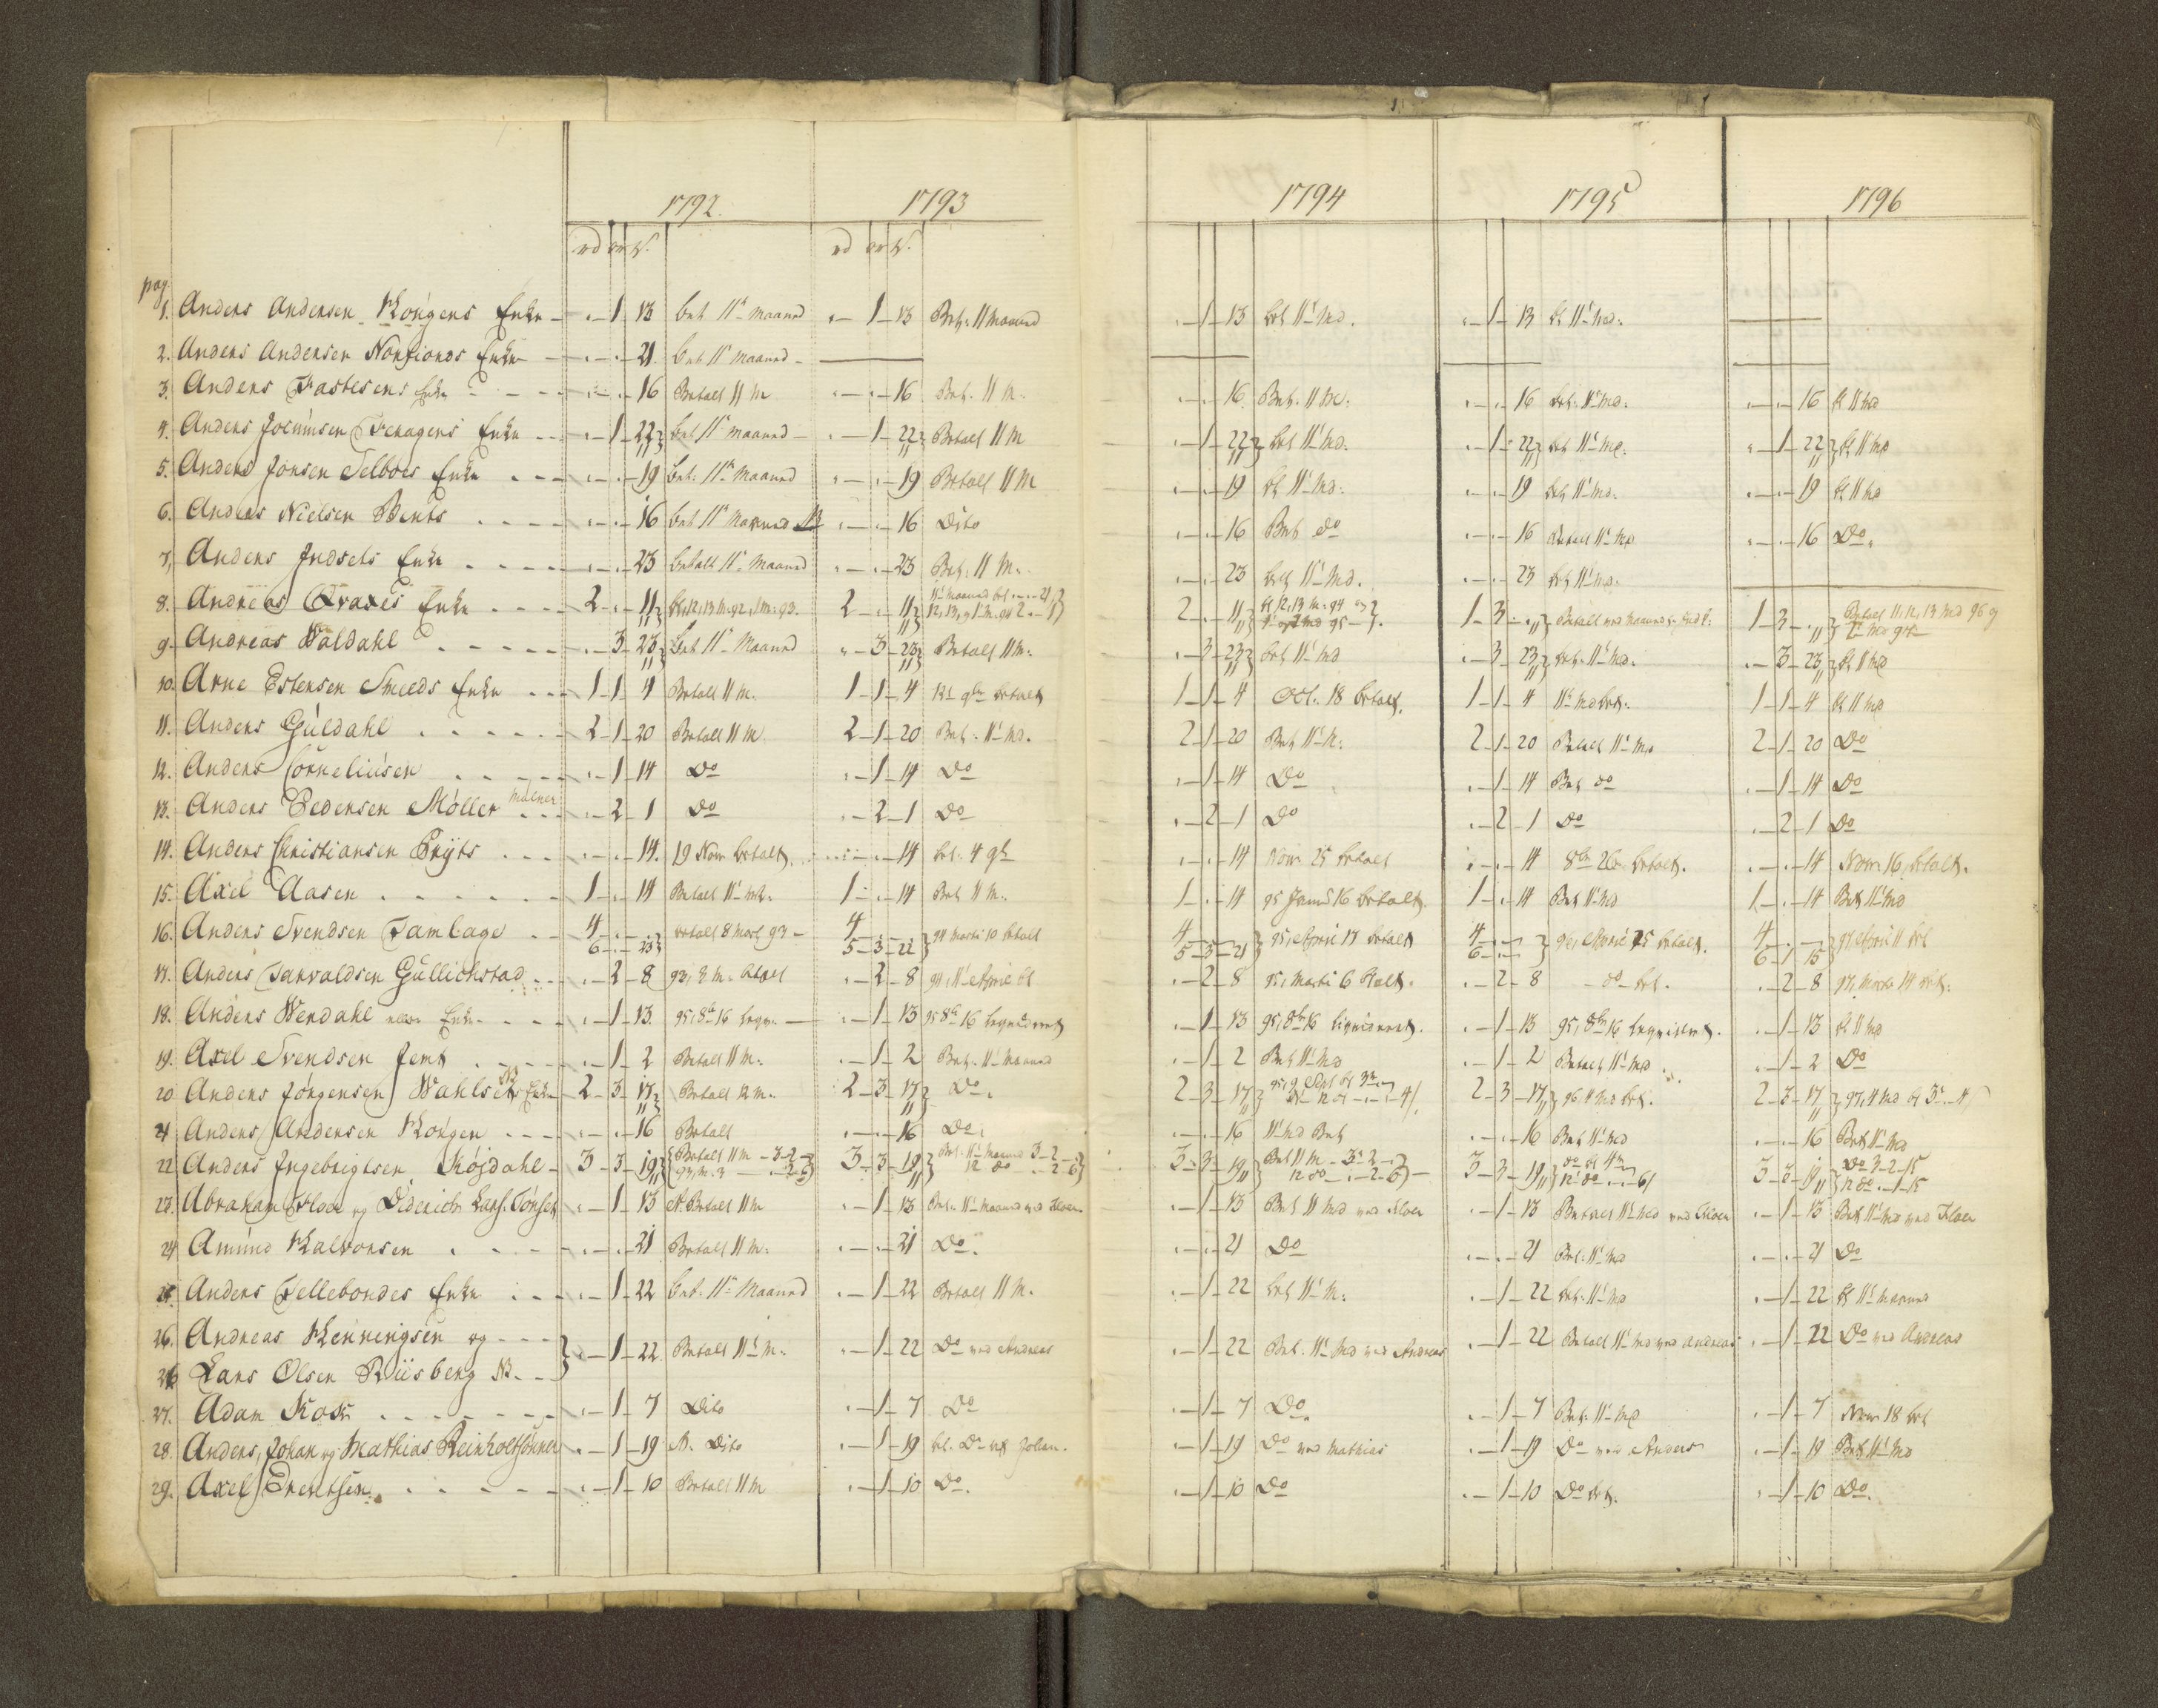 1792. 1793 1794 1795 1796
rd ort s. rd ort s.
pag
1. Anders Andersen Kongens Enke - " - 1 - 13 bet 11te Maaned " - 1 - 13 Bet: 11 Maaned " - 1 - 13 bet 11te Md. " - 1 - 13 bt 11te Md:
2. Anders Andersen Norfiords Enke - " - " - 21. bet 11te Maaned -
3. Anders Fastesens Enke - " - " - 16 Betalt 11 M " - " - 16 Bet. 11 M. " - " - 16 Bet. 11 M: " - " - 16 bet. 11te Md: " - " - 16 bt 11 Md
4. Anders Jocumsen Fenagens Enke - " - 1 - 22 bet 11te Maaned - " - 1 - 22 Betalt 11 M " - 1 - 22 bet 11te Md. " - 1 - 22 bet 11te Md. " - 1 - 22 bt 11 Md
5. Anders Jonsen Selboes Enke - " - " - 19 bet. 11te Maaned " - " - 19 Betalt 11 M " - " - 19 bt 11te Md. " - " - 19 bet 11te Md. " - " - 19 bt 11 Md
6. Anders Nielsen Bents - " - " - 16 bet 11te Maaned " - " - 16 Dito " - " - 16 Bet do " - " - 16 Betalt 11te Md " - " - 16 Do.
7. Anders Indsets Enke - " - " - 23 betalt 11te Maaned " - " - 23 Bet: 11 M. " - " - 23 bet 11te Md. " - " - 23 bet 11te Md.
8. Andreas Qvales Enke - 2 - " - 11 bt. 12, 13 M. 92, 1 M. 93. 2 - " - 11 11te Maaned bt 2 - " - 11 bt 12, 13 M. 94 1 - 3 - " Betalt 1 - 3 - " Betalt 11, 12, 13 Md 96 og
9. Andreas Waldahl - " - 3 - 23 bet 11te Maaned " - 3 - 23 Betalt 11 M. " - 3 - 23 bet 11te Md " - 3 - 23 bet. 11te Md. " - 3 - 23 bt 11 Md
10. Arne Estensen Smeds Enke - 1 - 1 - 4 Betalt 11 M. 1 - 1 - 4 betalt 1 - 1 - 4 Oct. 18 betalt. 1 - 1 - 4 11te Md bet. 1 - 1 - 4 bt 11 Md
11. Anders Guldahl - 2 - 1 - 20 Betalt 11 M 2 - 1 - 20 Bet. 11te Md. 2 - 1 - 20 Bet 11te M. 2 - 1 - 20 Betalt 11te Md 2 - 1 - 20 Do
12. Anders Corneliusen - " - 1 - 14 Do " - 1 - 14 Do " - 1 - 14 Do " - 1 - 14 Bet do " - 1 - 14 Do
13. Anders Pedersen Møller - " - 2 - 1 Do " - 2 - 1 Do " - 2 - 1 Do " - 2 - 1 Do " - 2 - 1 Do
14. Anders Christiansen Pryts - " - " - 14. 19 Nov. betalt. " - " - 14 bet. 4 " - " - 14 Novr 25 betalt " - " - 14 8br 26 betalt. " - " - 14 Novr 16 betalt.
15. Axel Aasen - 1 - " - 14 Betalt 11te Md. 1 - " - 14 Bet 11 M. 1 - " - 14 95 16 betalt. 1 - " - 14 Bet 11te Md 1 - " - 14 Bet 11te Md
16. Anders Svendsen Tamlage - 4 - " - " betalt 8 Mart 93 - 4 94 Marti 10 betalt 4 95, April 17 betalt 4 96, April 25 betalt. 4 97 April 11 bet
6 - " - 23 5 - 3 - 22 5 - 3 - 21 6 - " - " 6 - 1 - 15
17. Anders Tarvaldsen Gullichstad - " - 2 - 8 " - 2 - 8 94, 11te April bt " - 2 - 8 95, Marti 6 btalt. " - 2 - 8 do bet. " - 2 - 8 97, Marti 14 bet.
18. Anders Werdahl Enke - " - 1 - 13. 95, 8br 16 " - 1 - 13 95 8br 16 " - 1 - 13 95, 8br 16 liquideret. " - 1 - 13 95, 8br 16 " - 1 - 13 bt 11 Md
19. Axel Svendsen Jemt - " - 1 - 2 Betalt 11 M. " - 1 - 2 Bet. 11te Maaned " - 1 - 2 Bet 11te Md " - 1 - 2 Betalt 11te Md " - 1 - 2 Do
20 Anders Jørgensen Wahlset Enke 2 - 3 - 17 Betalt 12 M. 2 - 3 - 17 Do. 2 - 3 - 17 95, 9 Sept 2 - 3 - 17 96 4 Md bet. 2 - 3 - 17 97, 4 Md
21 Anders Andersen Kongen - " - " - 16 Betalt " - " - 16 Do. " - " - 16 11te Md Bet " - " - 16 Bet 11te Md " - " - 16 Bet 11te Md
22 Anders Ingebrigtsen Røjdahl - 3 - 3 - 19 Betalt 11 M - 3 - 2 3 - 3 - 19 Bet. 11te Maaned 3 - 2 3 - 3 - 19 Bet 11 M - 3 - 2 3 - 3 - 19 do 3 - 3 - 19 Do 3 - 2 - 15
12 do " - 2 - 6 12 do " - 2 - 6 12 do 12 do " - 1 - 15
23. Abraham Floer og Diderich Lars. Tønset " - 1 - 13 Betalt 11 M " - 1 - 13 Bet. 11te Maaned ved Floer " - 1 - 13 Bet 11 Md ved Floer " - 1 - 13 Betalt 11te Md ved Floer " - 1 - 13 Bet 11te Md ved Floer
24 Amund Halvorsen - " - " - 21 Betalt 11 M. " - " - 21 Do. " - " - 21 Do " - " - 21 Bet. 11te Md " - " - 21 Do
25. Anders Tellebondes Enke - " - 1 - 22 bet. 11te Maaned " - 1 - 22 Betalt 11 M. " - 1 - 22 bet 11te M. " - 1 - 22 bet. 11te Md " - 1 - 22 bt 11te Maaned
26. Andreas Henningsen og - " - 1 - 22 Betalt 11te M. " - 1 - 22 Do ved Andreas " - 1 - 22 Bet. 11te Md ved Andreas " - 1 - 22 Betalt 11te Md ved Andreas " - 1 - 22 Do ved Andreas
26 Lars Olsen Riisberg NB
27. Adam Kosk - " - 1 - 7 Dito " - 1 - 7 Do " - 1 - 7 Do. " - 1 - 7 Bet. 11te Md " - 1 - 7 Novr 18 bet
28. Anders, Johan og Mathias Reinholtsønner " - 1 - 19 Dito " - 1 - 19 bt. Do Johan. " - 1 - 19 Do ved Mathias " - 1 - 19 Do ved Anders " - 1 - 19 Bet 11te Md
29. Axel Erentsen - " - 1 - 10 Betalt 11 M " - 1 - 10 Do. " - 1 - 10 Do " - 1 - 10 Do bet. " - 1 - 10 Do.